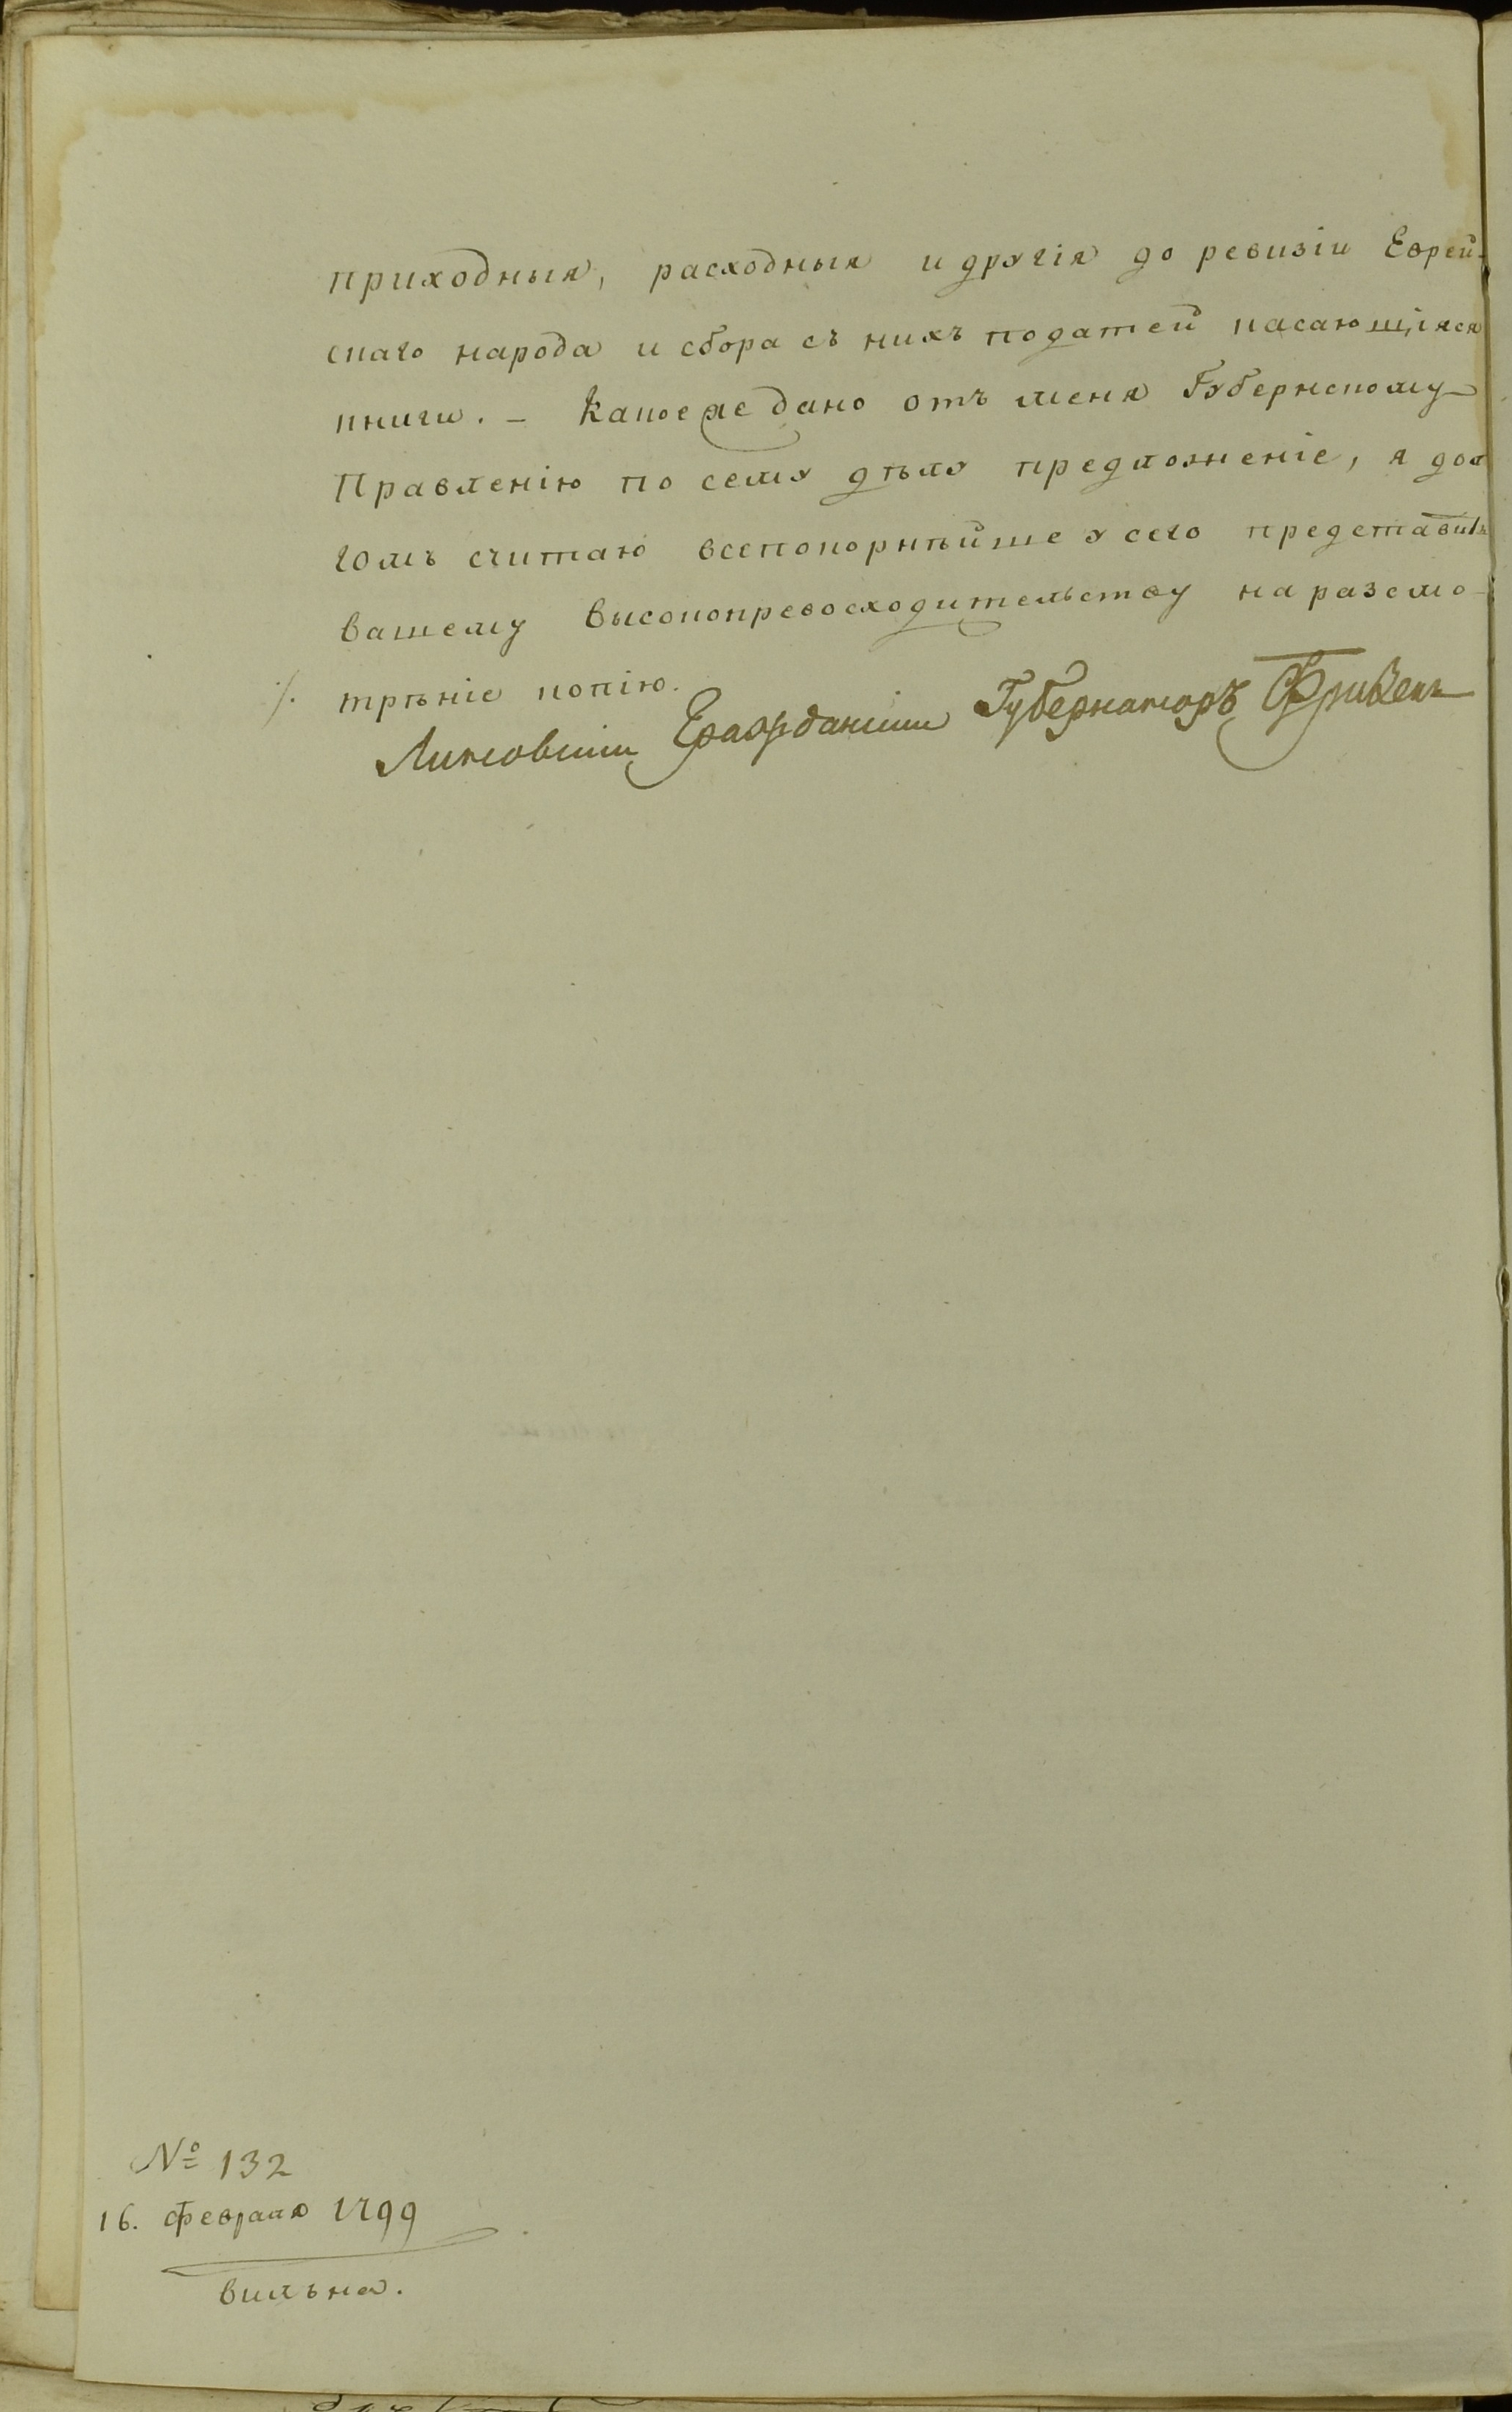 приходныя, расходныя и другія до ревизіи Еврей-
скаго народа и сбора съ нихъ податей касающіяся
книги. – Какое же дано отъ меня Губернскому
Правленію по сему дѣлу предложеніе, я дол
гомъ считаю всепокорнѣйше у сего представить
вашему высокопревосходительству на разсмо-
./. трѣніе копію.
Литовскій Гражданскій Губернаторъ Фризель
№ 132
16. февраля 1799
вильна.